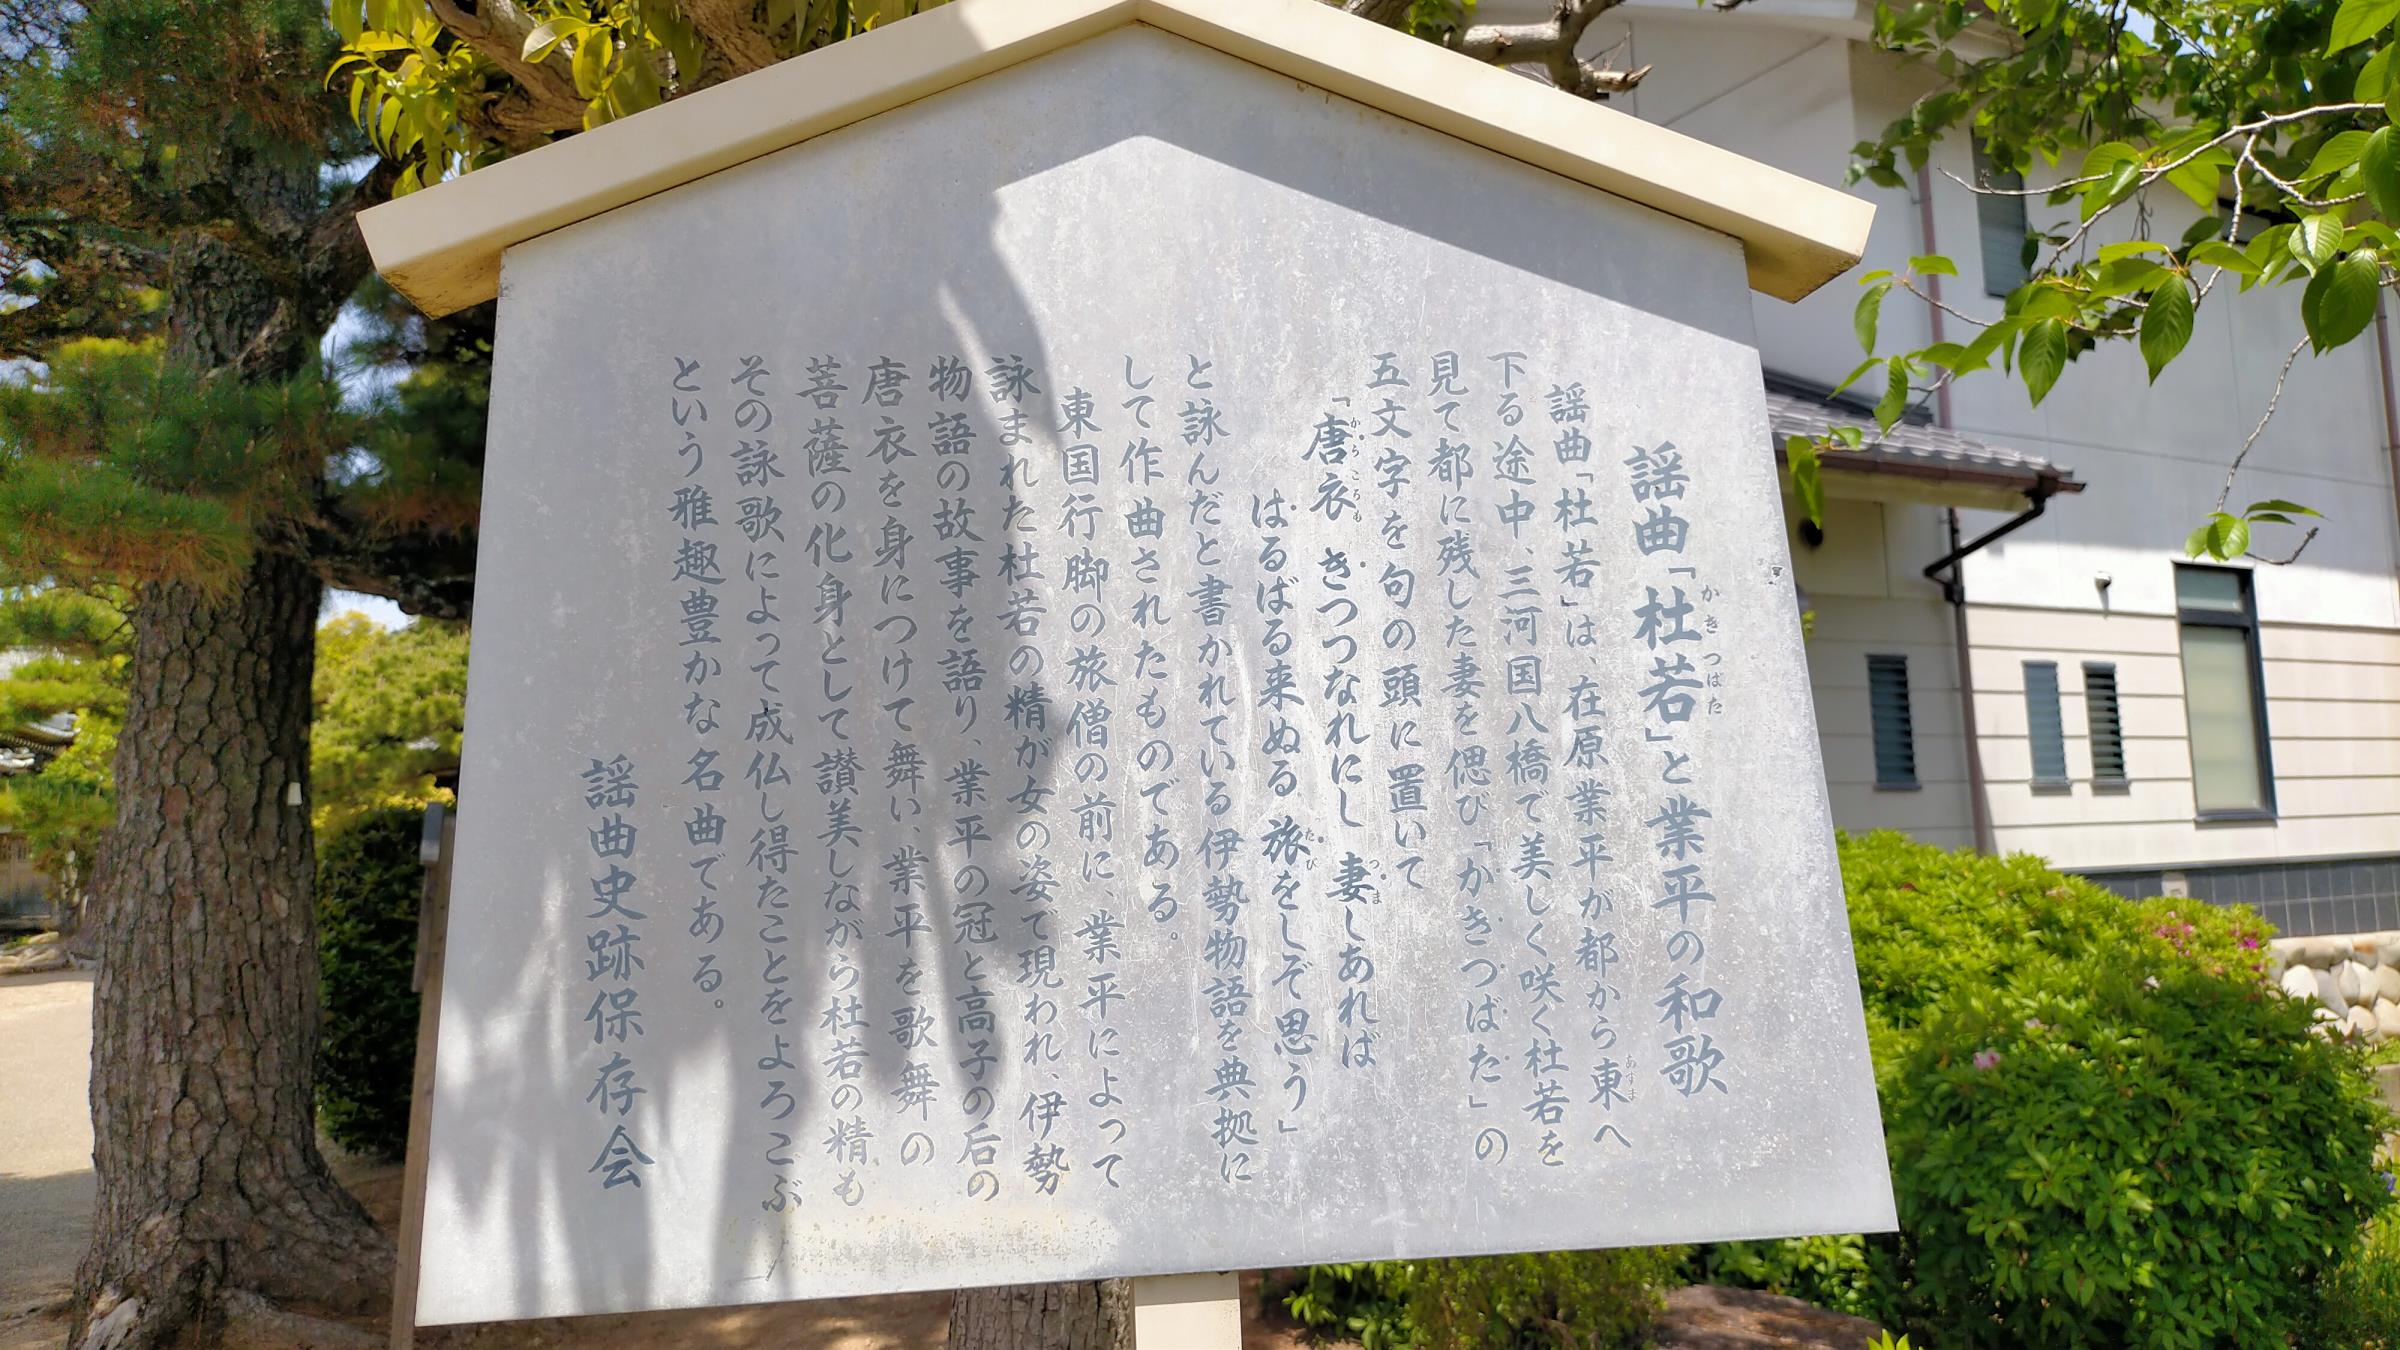 謡曲「杜若」と業平の和歌
謡曲「杜若」は、在原業平が都から東へ
下る途中、三河国八橋で美しく咲く杜若を
見て都に残した妻を偲び「かきつばた」の
五文字を句の頭に置いて
「唐衣 きつつなれにし 妻しあれば
はるばる来ぬる 旅をしぞ思う」
と詠んだと書かれている伊勢物語を典拠に
して作曲されたものである。
東国行脚の旅僧の前に、業平によって
詠まれた杜若の精が女の姿で現われ、伊勢
物語の故事を語り、業平の冠と高子の后の
唐衣を身につけて舞い、業平を歌舞の
菩薩の化身として讃美しながら杜若の精も
その詠歌によって成仏し得たことをよろこぶ
という雅趣豊かな名曲である。
謡曲史跡保存会